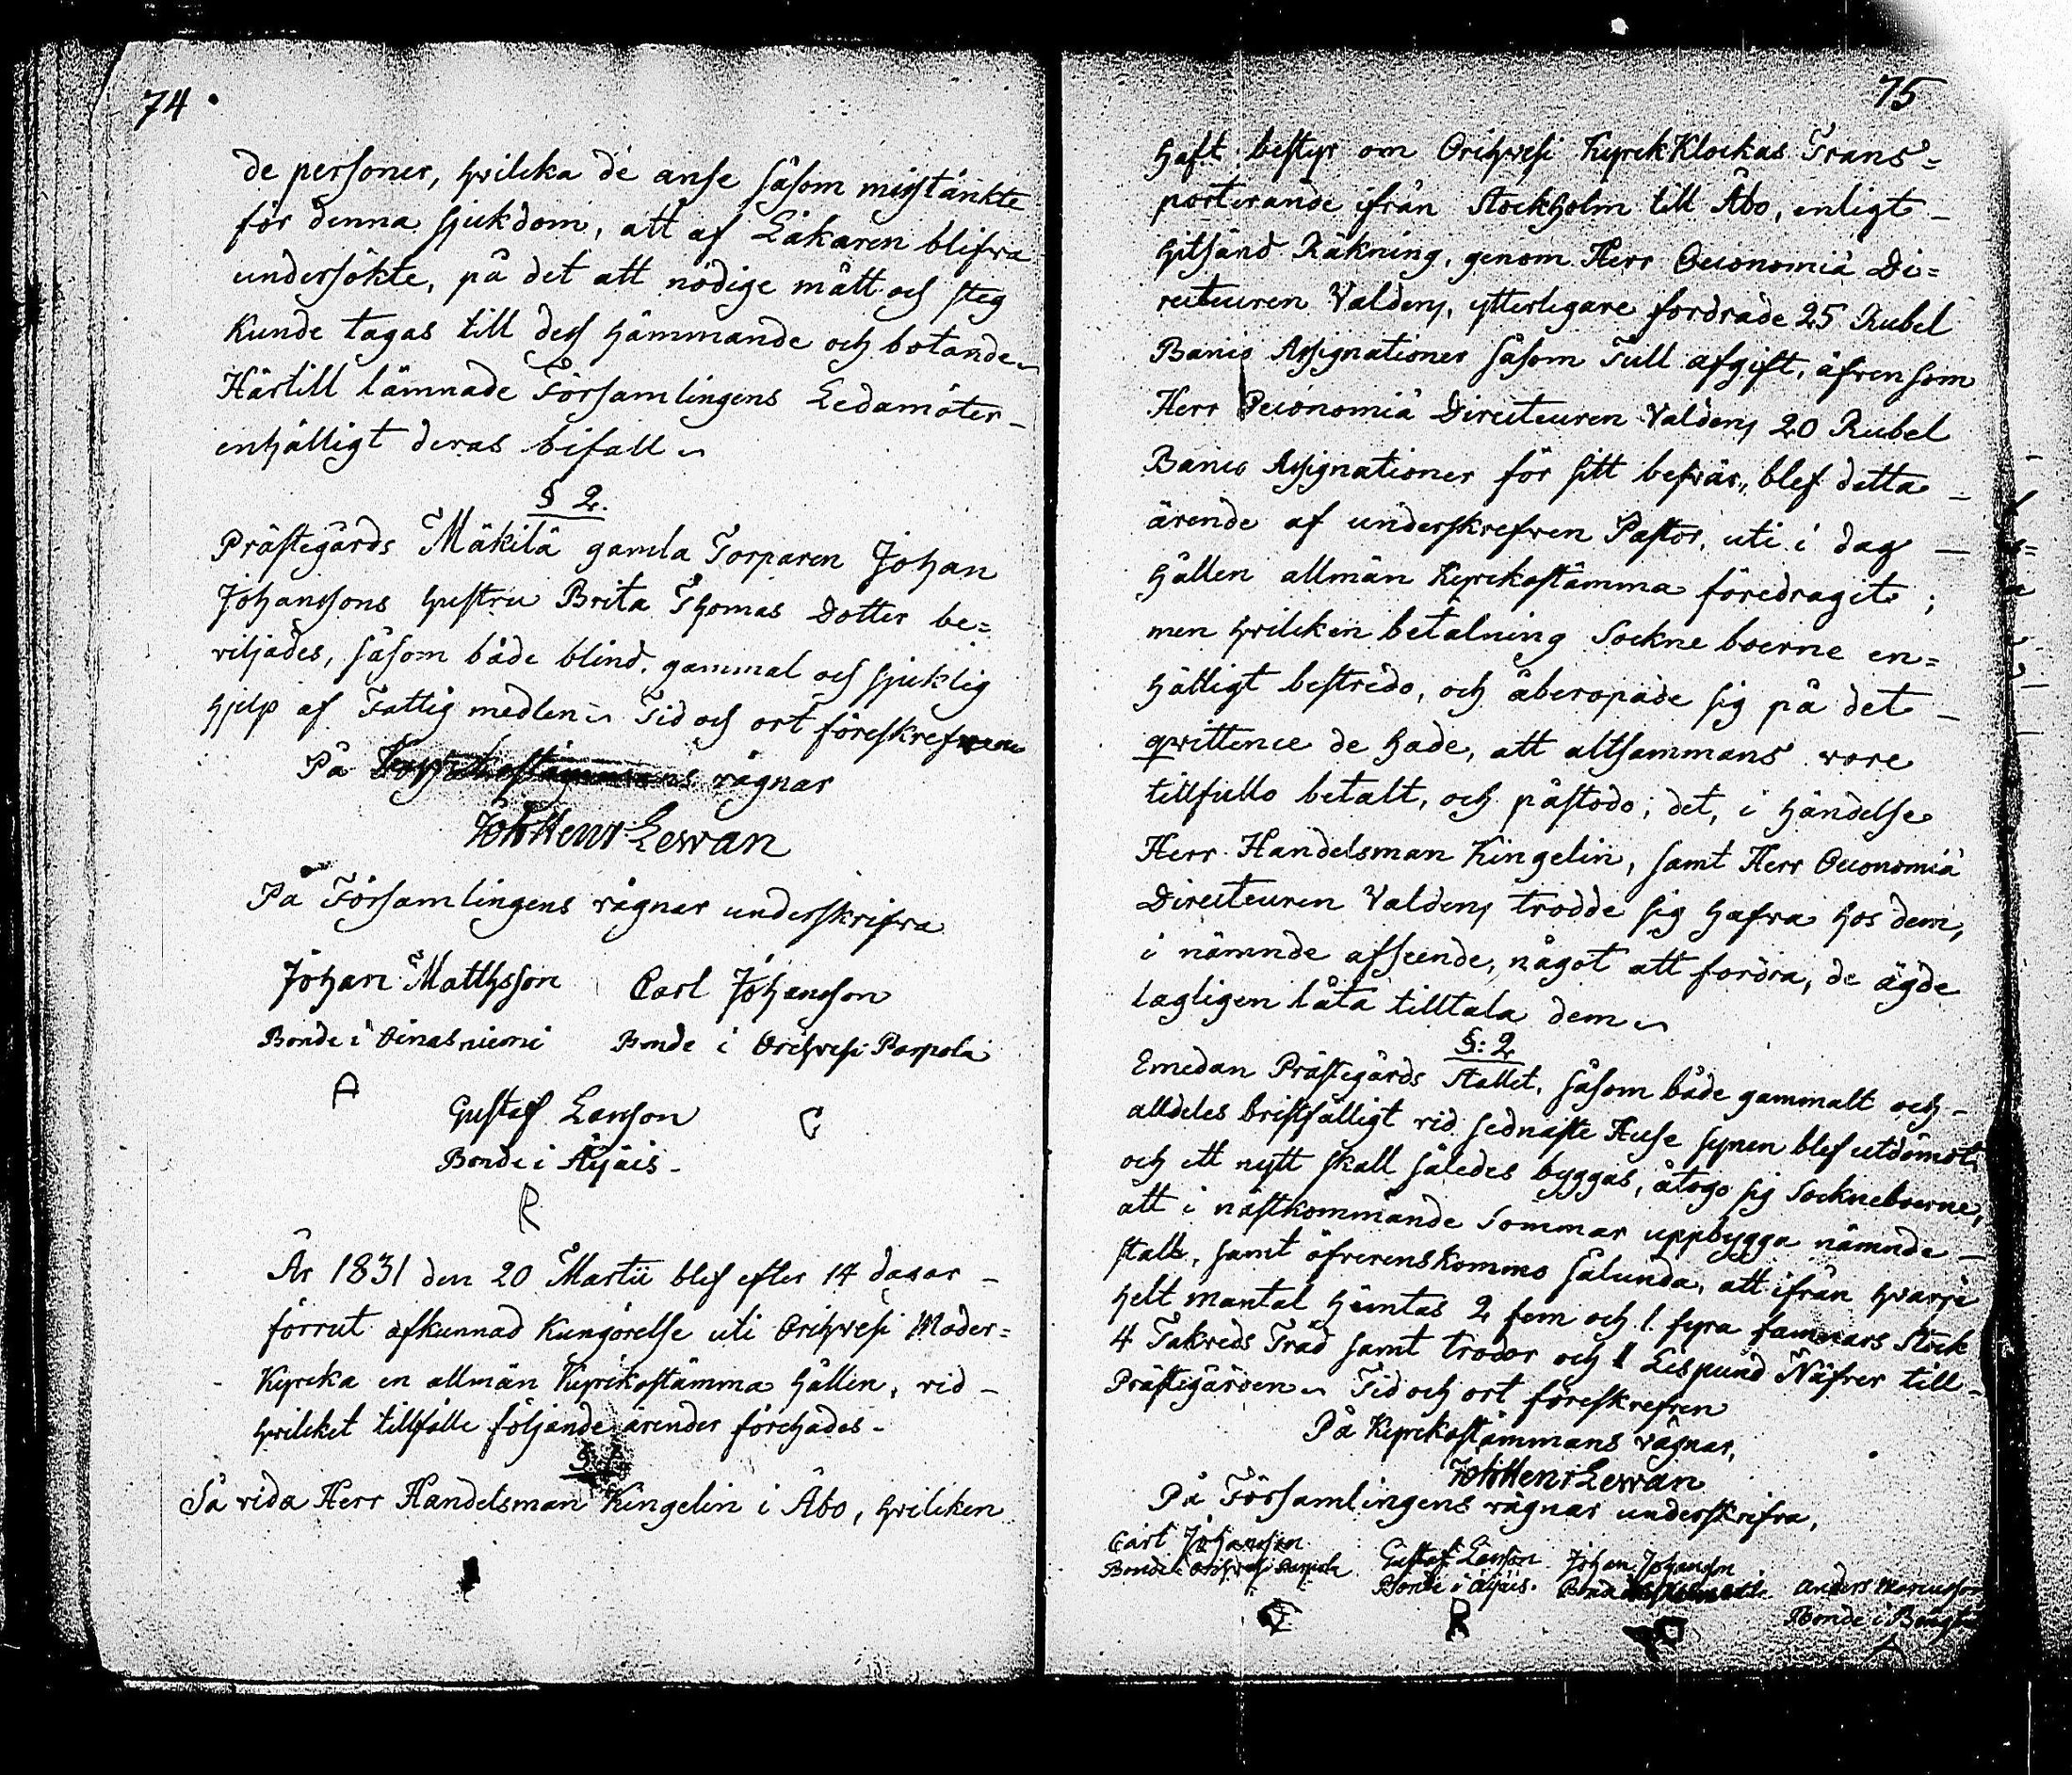 74
de personer, hvilcka de anse såsom misstänkte
för denna sjukdom, att af Läkaren blifva
undersökte, på det att nödige mått och steg
kunde tagas till dess hämmande och botande
Härtill lämnade Församlingens Ledamöter
enhälligt deras bifall
§ 2.
Prästegårds Mäkilä gamla Torparen Johan
Johanssons hustru Brita Thomas Dotter be=
viljades, såsom både blind, gammal och sjuklig
hjelp af Fattig medlen. Tid och ort föreskrefvene
På Kyrckostämmans vägnar
Joh Henr Lewan
På Församlingens vägnar underskrifva
Johan Matthsson Carl Johansson
Bonde i Oinasniemi Bonde i Orihvesi Parpola
A
Gustaf Larsson C
Bonde i Äijäis
R
År 1831 den 20 Martii blef efter 14 dagar
förrut afkunnad kungörelse uti Orihvesi Moder=
Kyrcka en allmän Kyrckostämma hållen, vid
hvilcket tillfälle följande ärender förehades
Så vida Herr Handelsman Kingelin i Åbo, hvilcken
75
haft bestyr om Orihvesi Kyrck Klockas Trans=
porterande ifrån Stockholm till Åbo, enligt
hitsänd Räkning, genom Herr Oeconomiä Di=
recteuren Valdens, ytterligare fordrade 25 Rubel
Banco Assignationer såsom Tull afgift, äfven som
Herr Oeconomiä Directeuren Valdens 20 Rubel
Banco Assignationer för sitt besvär, blef detta
ärende af underskrefven Pastor, uti i dag
hållen allmän Kyrckostämma föredragit ;
men hvilcken betalning Sockne boerne en=
hälligt bestredo, och åberopade sig på det
qvittence de hade, att altsammans vore
tillfullo betalt, och påstodo, det, i händelse
Herr Handelsman Kingelin, samt Herr Oeconomiä
Directeuren Valdens trodde sig hafva hos dem,
i nämnde afseende, något att fordra, de ägde
lagligen låta tilltala dem
§: 2
Emedan Prästegårds Stallet, såsom både gammalt och
alldeles bristfälligt vid sednaste Huse synen blef utdömdt,
och ett nytt skall således byggas, åtogo sig Sockneboerne,
att i nästkommande Sommar uppbygga nämnde
stall, samt öfverenskommo sålunda, att ifrån hvarje
helt mantal hämtas 2 fem och 1. fyra famnars Stock
4 Takveds Träd samt trodor och 1 Lispund Näfver till
Prästegården. Tid och ort föreskrefven
På Kyrckostämmans vägnar,
Joh Henr Lewan
På Församlingens vägnar underskrifva,
Carl Johansson Gustaf Larsson Johan Johansson Anders Marcusson
Bonde i Orihvesi Parpola Bonde i Äijäis. Bonde i Bonde i
C R A